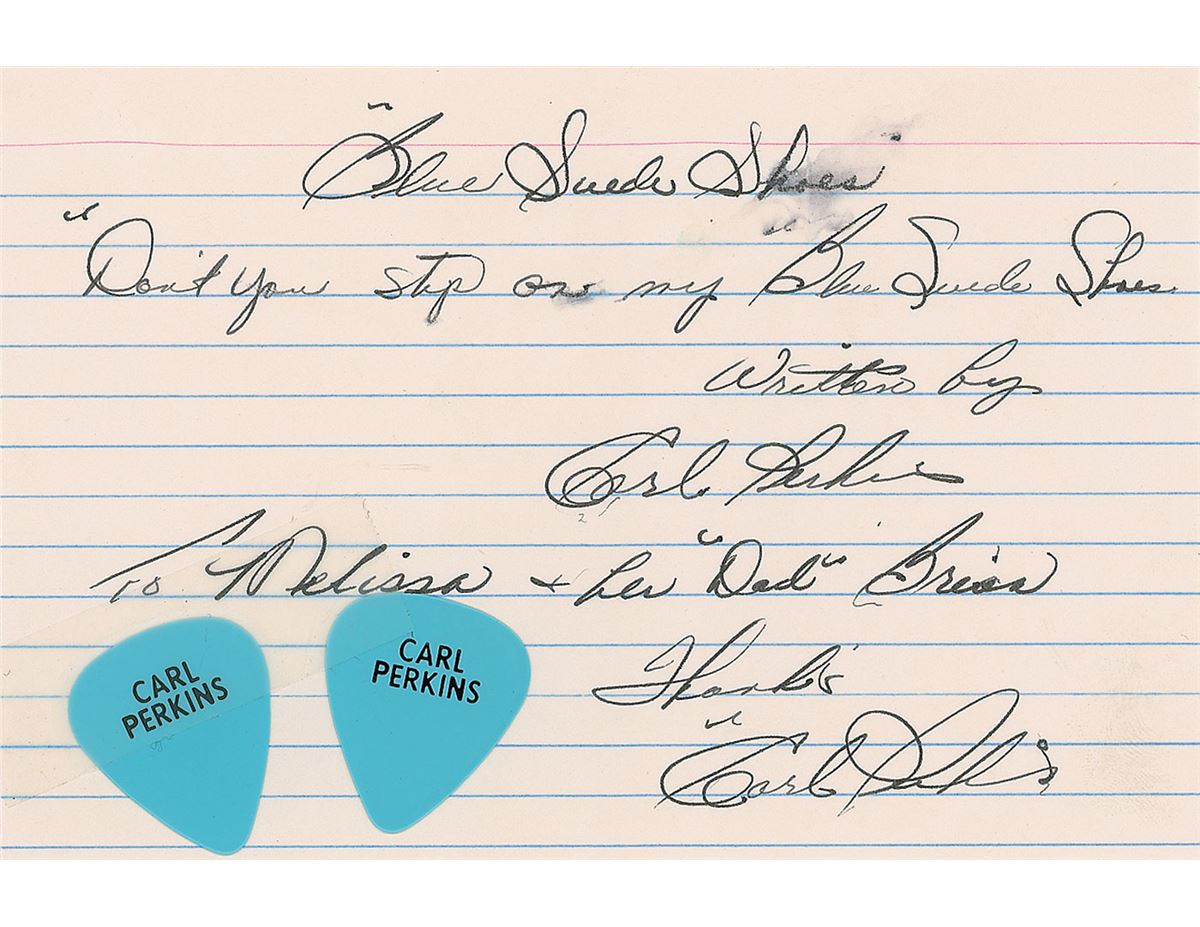 "Blue Suede Shoes"
"Don't you step on my Blue Suede Shoes.
Written by
Carl Perkins
To Melissa + her "Dad" Brian
Thanks
"Carl Perkins
CARL
PERKINS
CARL
PERKINS